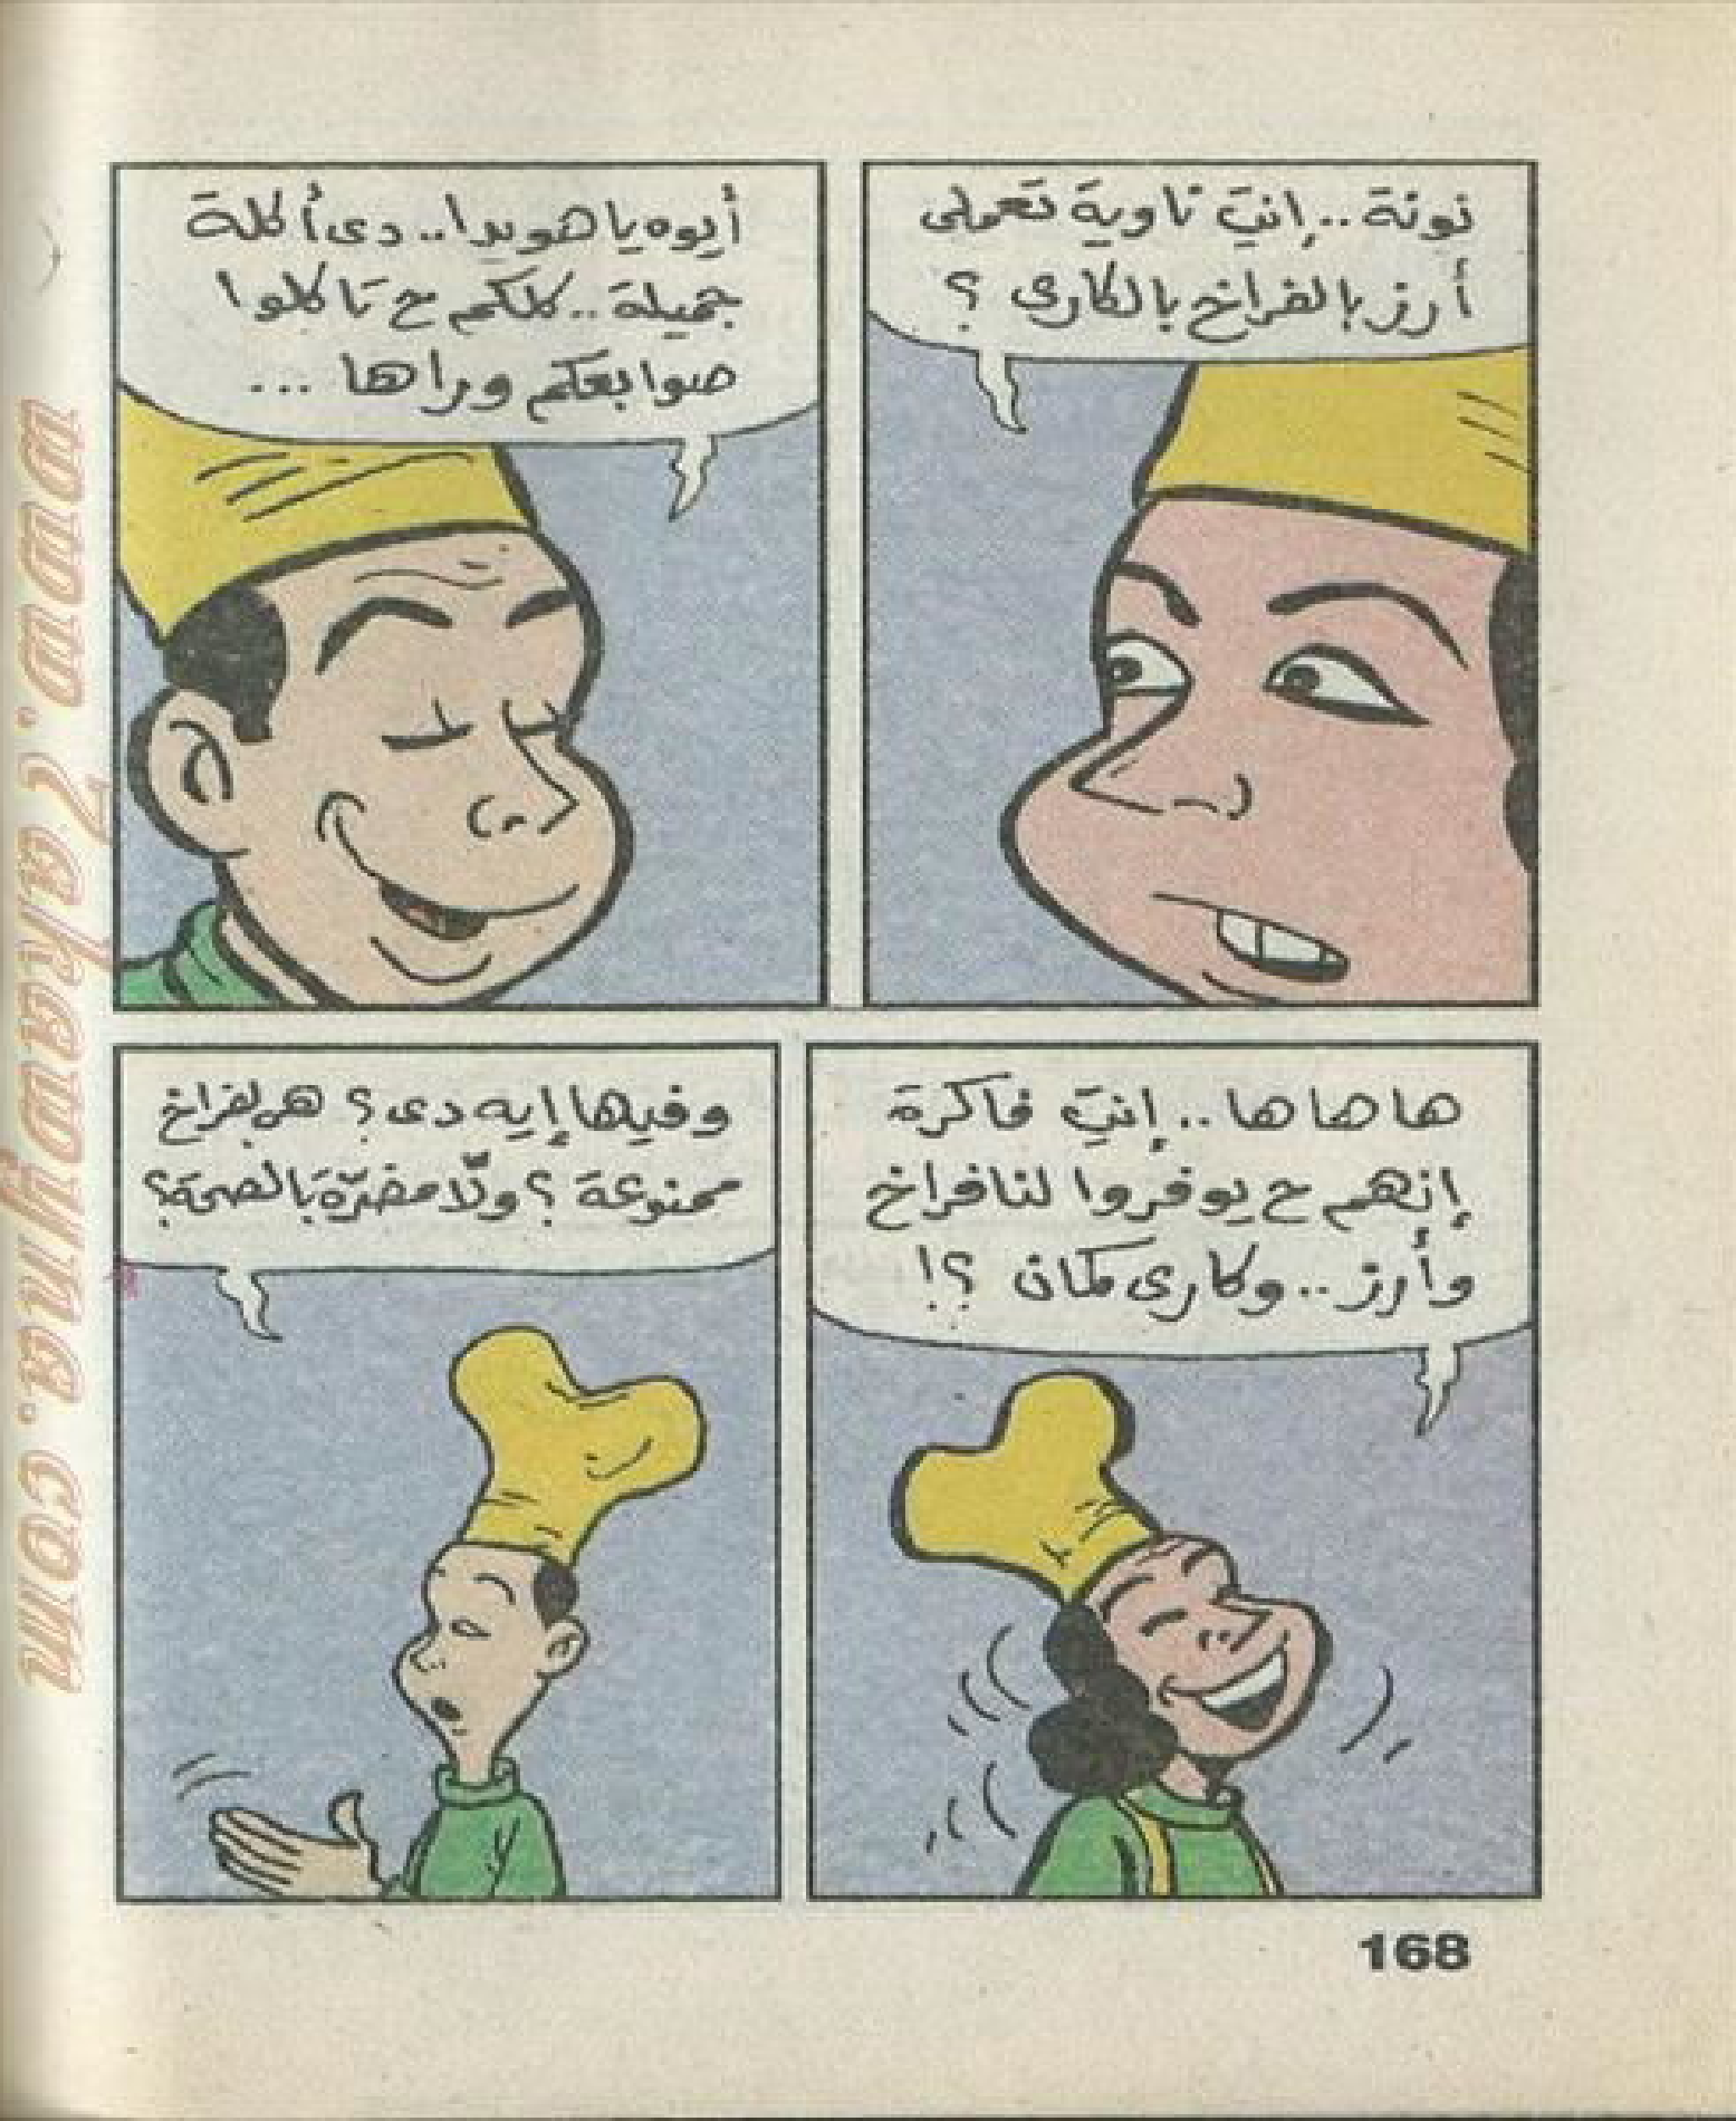 نونة .. إنتِ ناوية تعملى
أرز بالفراخ بالكارى ؟
أيوه يا هويدا .. دى أكلة
جميلة .. كلكم ح تاكلوا
صوابعكم وراها ...
ها ها ها .. إنتِ فاكرة
إنهم ح يوفروا لنا فراخ
وأرز .. وكارى كمان ؟!
وفيها إيه دى ؟ هى الفراخ
ممنوعة ؟ ولّا مضرّة بالصحة ؟
168